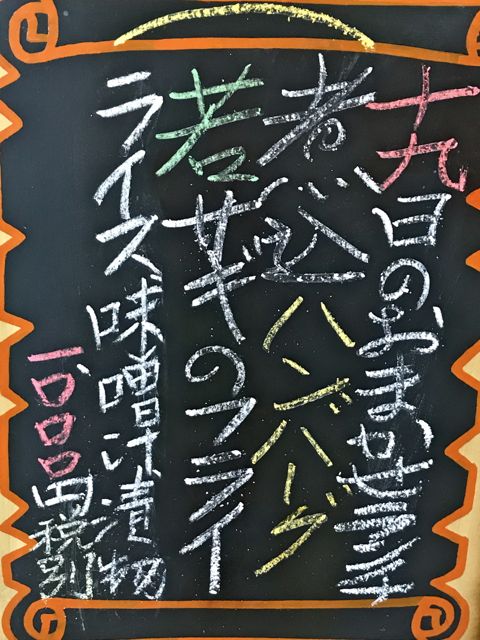 十九日のおまかせ
煮込ハンバーグ
若サギのフライ
ライス味噌汁漬物
一、〇〇〇円税別